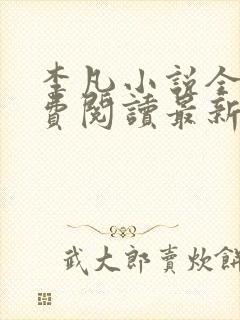 李凡小說全
費閱讀最新
武大郎賣炊餅